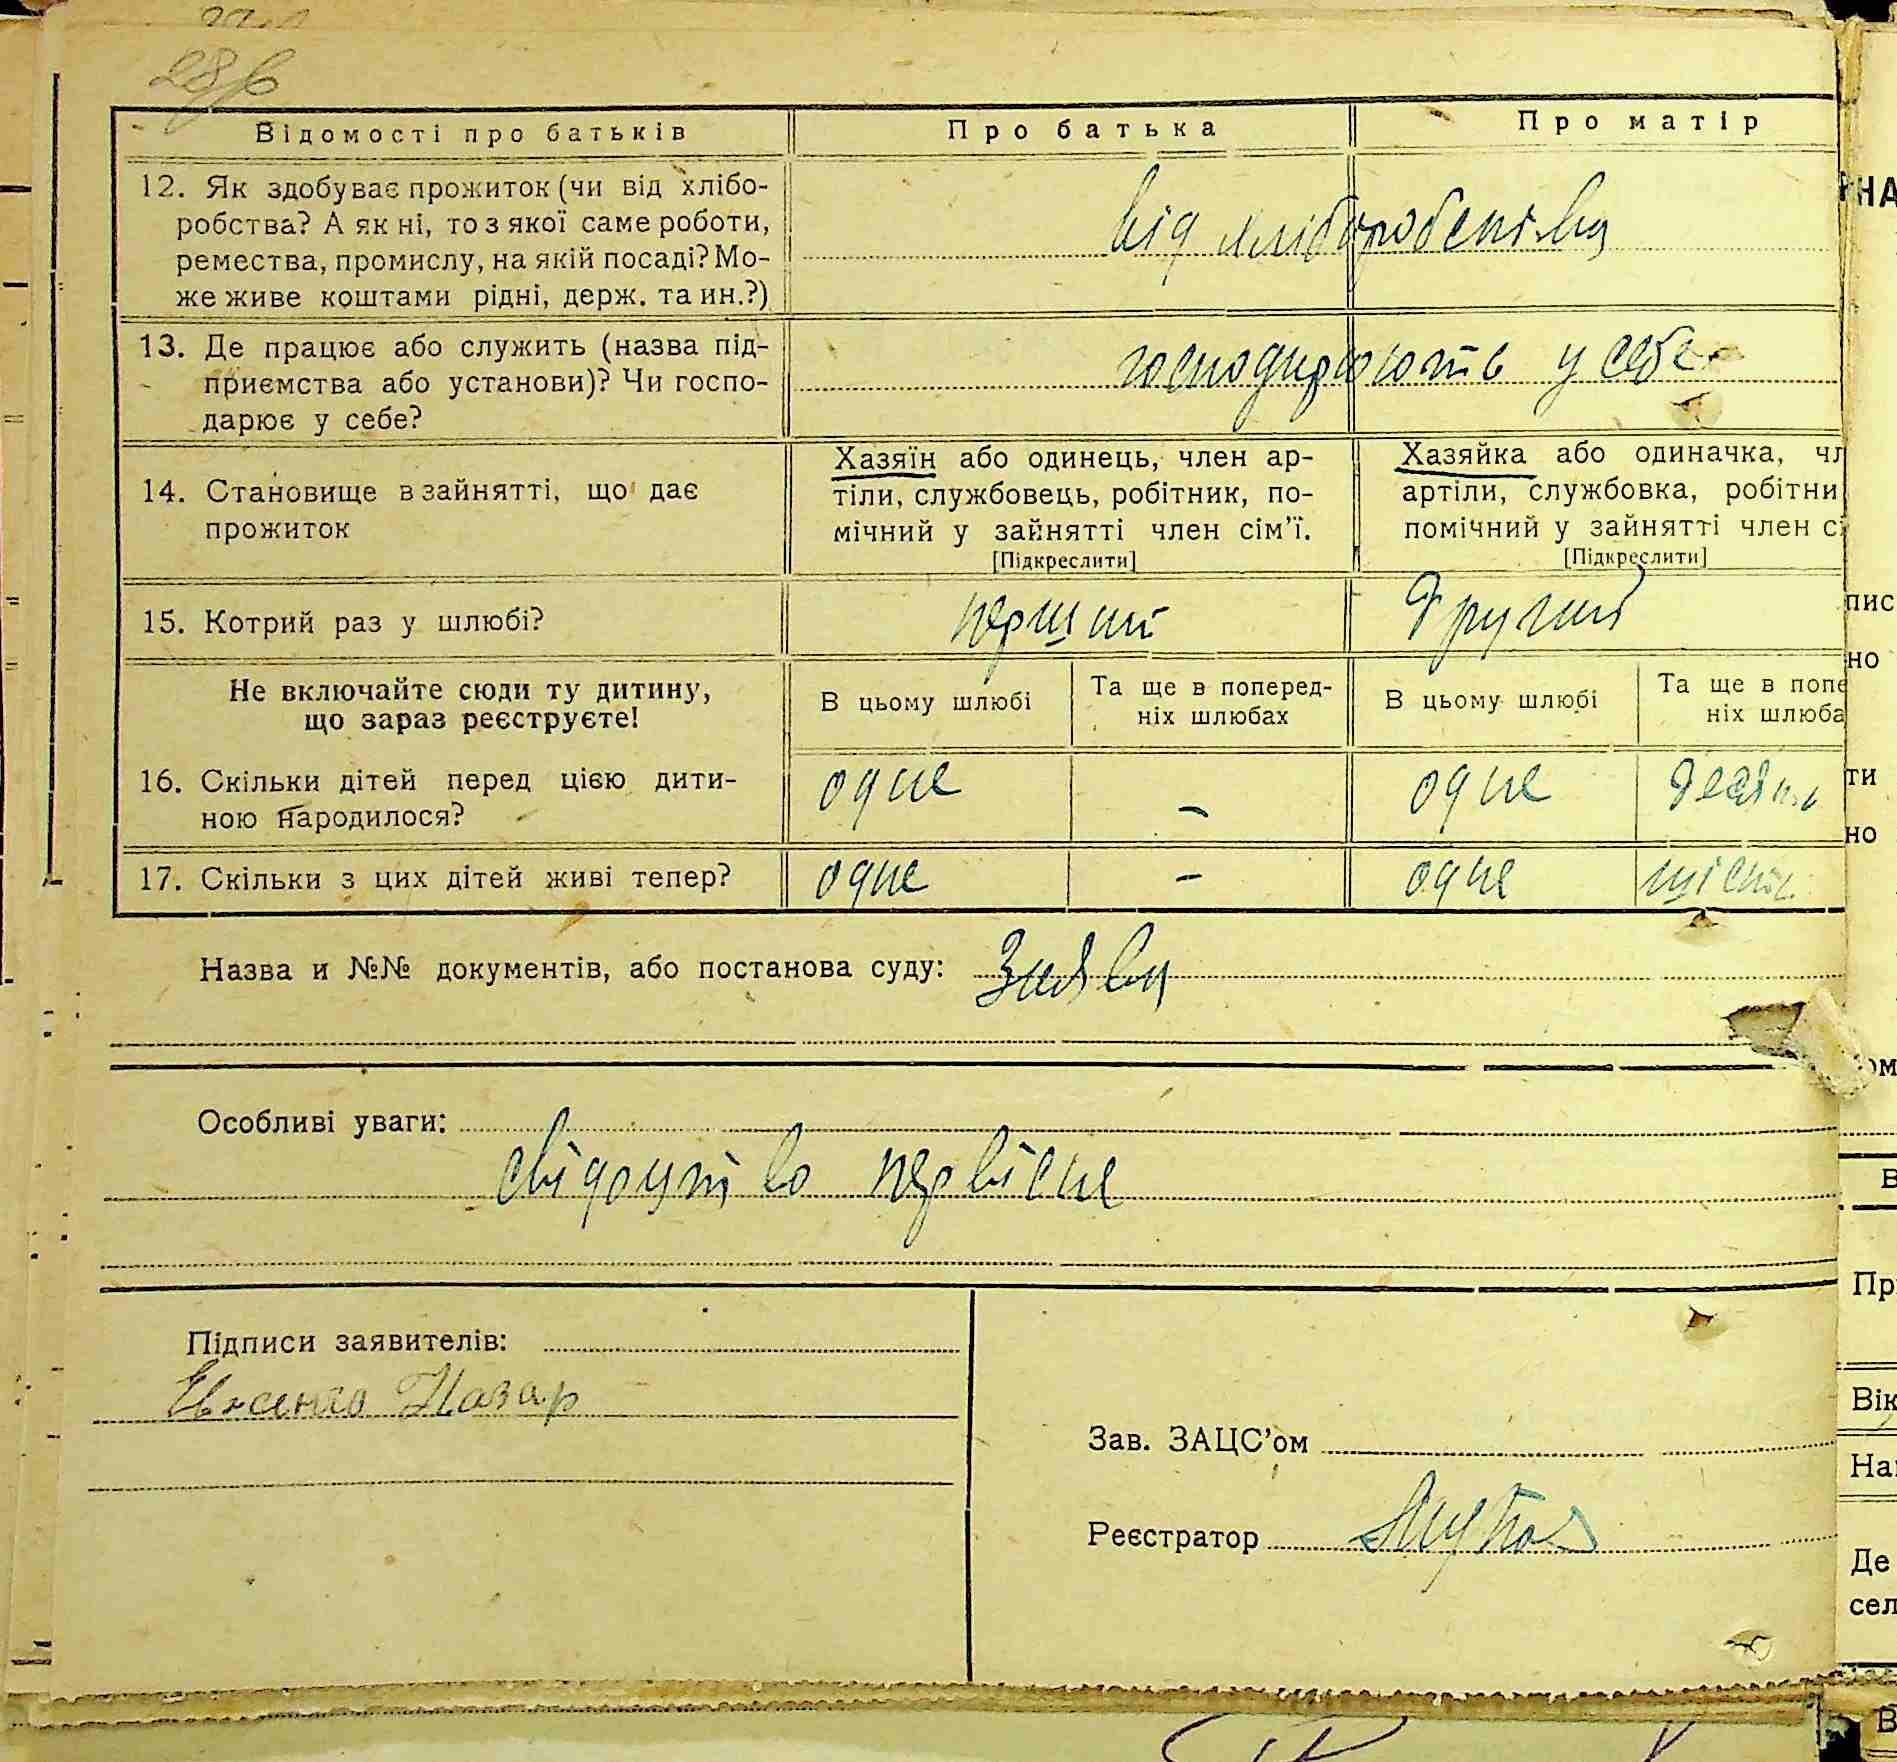 Відомості про батьків Про батька Про матір
12. Як здобуває прожиток (чи від хлібо-
робства? А як ні, то з якої саме роботи,
ремества, промислу, на якій посаді? Мо-
же живе коштами рідні, держ. та ин.?)
від хліборобства
13. Де працює або служить (назва під-
приємства або установи)? Чи госпо-
дарює у себе?
господарюють у себе
14. Становище в зайнятті, що дає
прожиток
Хазяїн або одинець, член ар-
тіли, службовець, робітник, по-
мічний у зайнятті член сім'ї.
[Підкреслити]
Хазяйка або одиначка, чл
артіли, службовка, робітни
помічний у зайнятті член сі
[Підкреслити]
15. Котрий раз у шлюбі? перший другий
Не включайте сюди ту дитину,
що зараз реєструєте!
В цьому шлюбі
Та ще в поперед-
ніх шлюбах
В цьому шлюбі
Та ще в попе
ніх шлюба
16. Скільки дітей перед цією дити-
ною народилося?
одне – одне десять
17. Скільки з цих дітей живі тепер? одне – одне шість
Назва и №№ документів, або постанова суду: Заява
Особливі уваги:
свідоцтво первісне
Підписи заявителів:
Назар
Зав. ЗАЦС'ом
Реєстратор
НА
пис
но
ти
но
ом
В
Пр
Вік
На
Де
сел
В